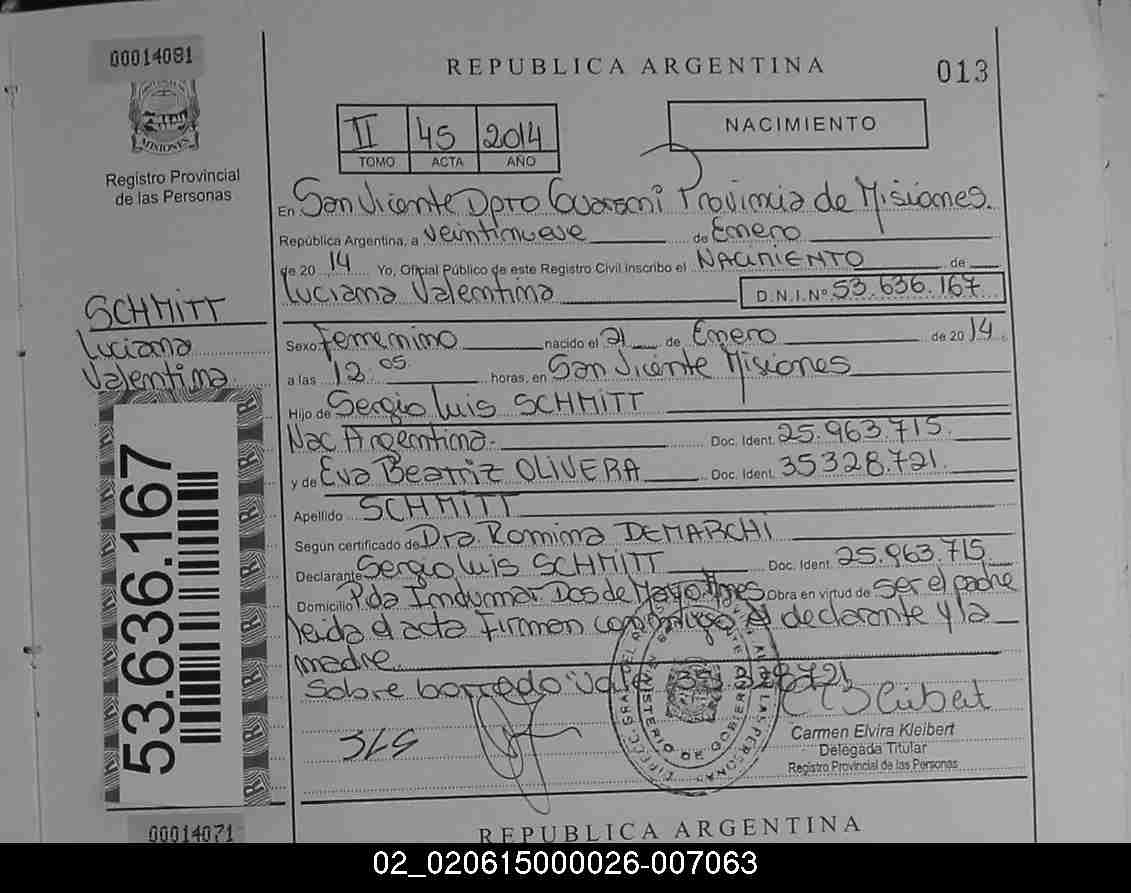 00014081
REPUBLICA ARGENTINA
013
MISIONES
Registro Provincial
de las Personas
II 45 2014
TOMO ACTA AÑO
NACIMIENTO
En San Vicente Dpto Guarani Provincia de Misiones.
República Argentina, a veintinueve de Enero
de 20 14 Yo, Oficial Público de este Registro Civil inscribo el NACIMIENTO de
Luciana Valentina D.N.I.Nº 53.636.167
SCHMITT
Luciana
Valentina
Sexo: Femenino nacido el 21 de Enero de 20 14
a las 12:05 horas, en San Vicente Misiones
Hijo de Sergio Luis SCHMITT
Nac Argentina. Doc. Ident. 25.963.715.
y de Eva Beatriz OLIVERA Doc. Ident. 35328.721.
Apellido SCHMITT
Según certificado de Dra. Romina DEMARCHI
Declarante Sergio Luis SCHMITT Doc. Ident. 25.963.715
Domicilio Dos de Mayo Mnes Obra en virtud de ser el padre
leida el acta firman conmigo el declarante y la
madre.
Sobre borrado vale 35 328721
53.636.167
Carmen Elvira Kleibert
Delegada Titular
Registro Provincial de las Personas
00014071
REPUBLICA ARGENTINA
02_020615000026-007063